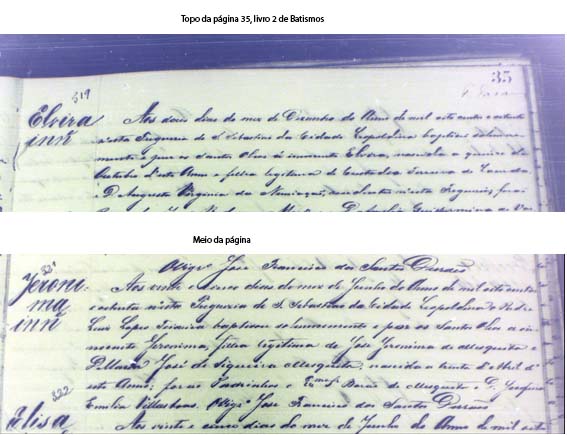 Topo da página 35, livro 2 de Batismos
35
319
Elvira
inn
Aos dous dias do mez de Dezembro do Anno de mil oito centos e oitenta
nesta Freguesia de S. Sebastião da Cidade Leopoldina baptisei solemne-
mente e puz os Santos Oleos á innocente Elvira, nascida a quinze de
Outubro d'este Anno e filha legitima de Custodio de Lacerda
e D. Augusta Virginia da d'esta Freguesia, forão
Meio da página
O Vigrº José Francisco dos Santos Durães
321
Jeroni-
ma
inn
Aos vinte e cinco dias do mez de Junho do Anno de mil oito centos
e oitenta nesta Freguesia de S. Sebastião da Cidade Leopoldina o Padre
Luiz Lopes Teixeira baptisou solemnemente e poz os Santos Oleos a in-
nocente Jeronima, filha legitima de José Jeronimo de Mesquita e
D. Maria José de Siqueira Mesquita, nascida a trinta d'Abril d'
este Anno; forão Padrinhos o Exmo Barão de Mesquita e D. Josefina
Emilia Villasboas. O Vigrº José Francisco dos Santos Durães
322
Elisa
Aos vinte e cinco dias do mez de Junho do Anno de mil oito